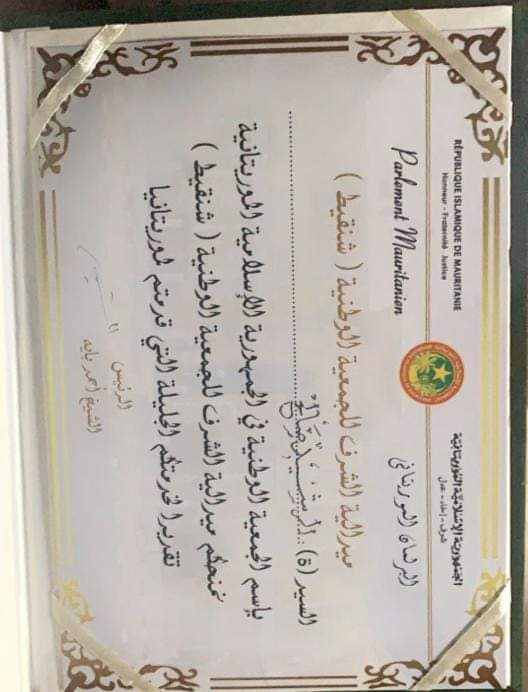 RÉPUBLIQUE ISLAMIQUE DE MAURITANIE
Honneur - Fraternité Justice
الجمهورية الإسلامية الموريتانية
شرف - إخاء - عدل
Parlement Mauritanien
البرلمان الموريتاني
ميدالية الشرف للجمعية الوطنية ( شنقيط )
السيد (ة)
بإسم الجمعية الوطنية في الجمهورية الإسلامية الموريتانية
نمنحكم ميدالية الشرف للجمعية الوطنية ( شنقيط )
تقديرا لخدمتكم الجليلة التي قدمتم لموريتانيا
الرئيس
الشيخ أحمد بايه